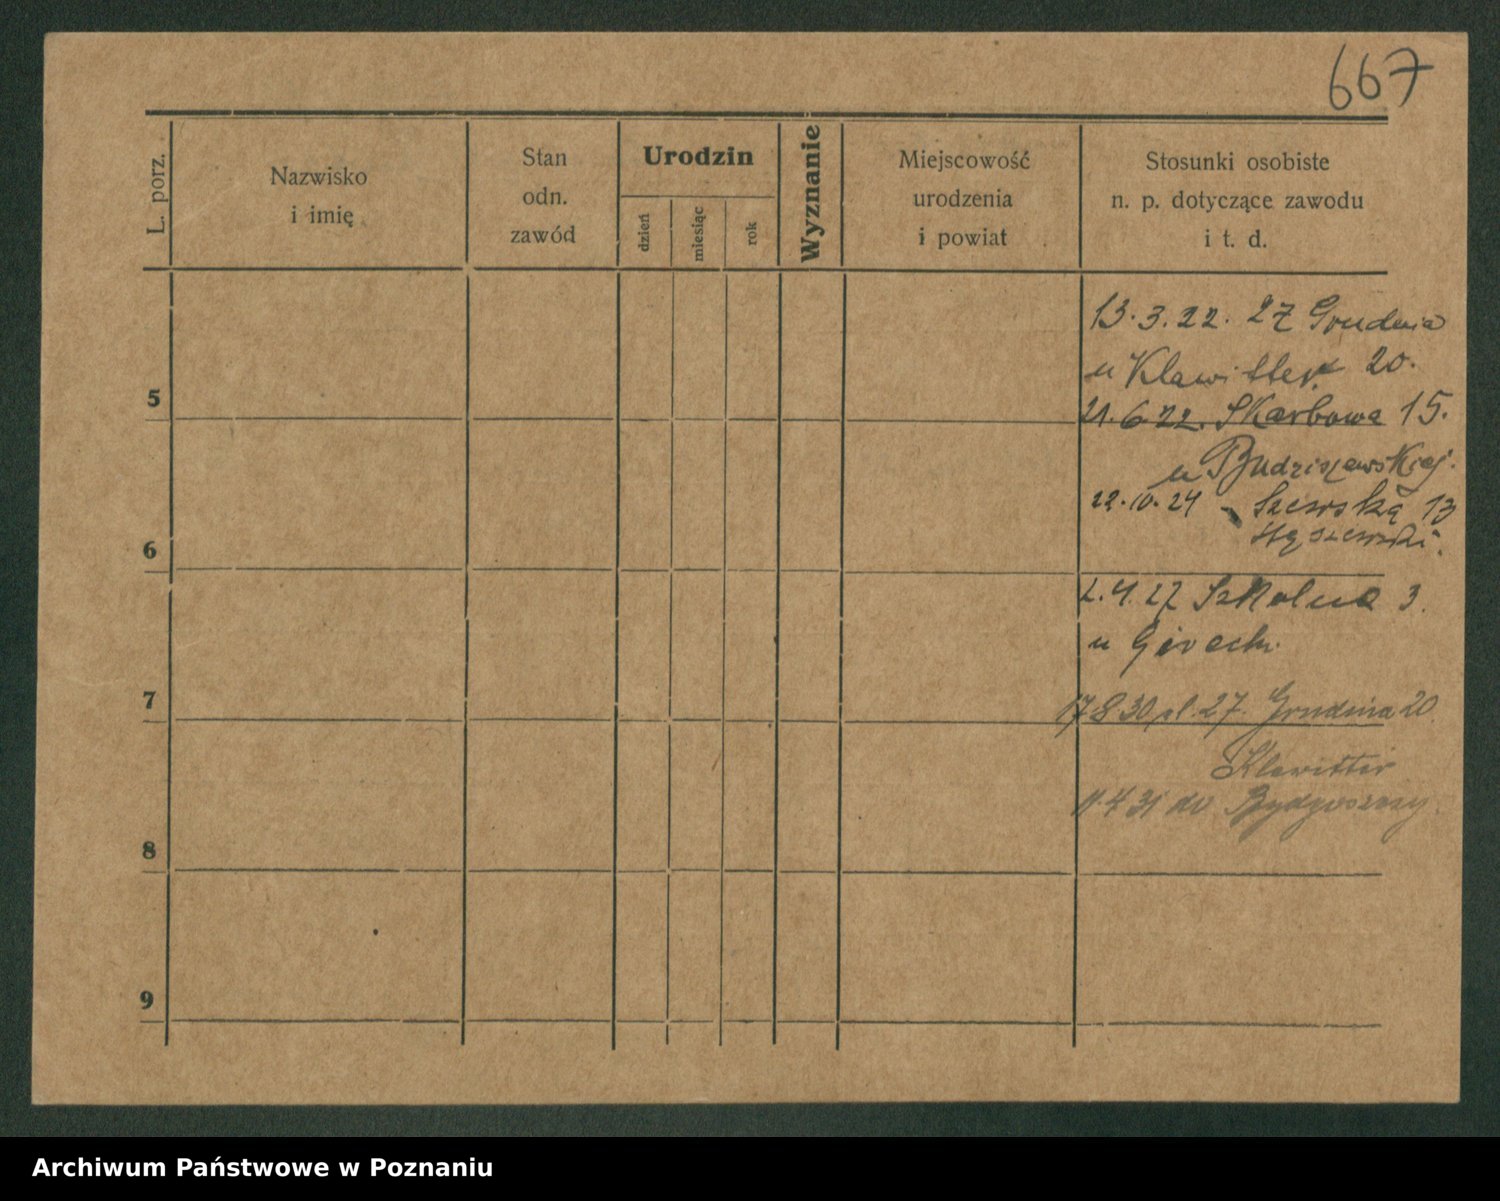 667
L. porz.
Nazwisko
i imię
Stan
odn.
zawód
Urodzin
dzień
miesiąc
rok
Wyznanie
Miejscowość
urodzenia
i powiat
Stosunki osobiste
n. p. dotyczące zawodu
i t. d.
13.3.22. 27 Grudnia
u Klawitter 20.
5
21.6.22. Skarbowa 15.
u Budziszewskiej.
22.10.24 Szewską 13
6
2.4.27 Szkolna 3.
u
7
17.8.30 pl. 27. Grudnia 20.
Klawitter
11.4.31 do Bydgoszczy.
8
9
Archiwum Państwowe w Poznaniu